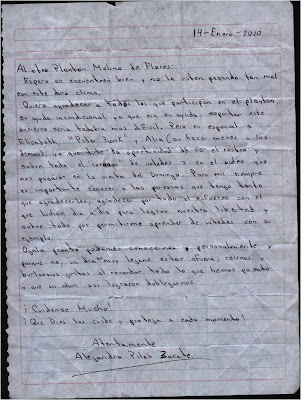 14-Enero-2010
Al otro Plantón Molino de Flores:
Espero se encuentren bien y no la esten pasando tan mal
con este duro clima.
Quiero agradecer a todos los que participan en el plantón
su ayuda incondicional ya que sin su ayuda soportar este
encierro seria todavia mas dificil. Pero en especial a
Elizabeth, "Pilto Junk", y Ana (no hace menos a los
demas) ya que me dan la oportunidad de ver el rostro y
sobre todo el corazon de ustedes en el video que
nos pasaron en la visita del Domingo. Para mi siempre
es importante conocer a las personas que tengo tanto
que agradecerles, agradecer por todo el esfuerzo con el
que luchan dia a dia para lograr nuestra libertad y
sobre todo por permitirme aprender de ustedes con su
ejemplo.
Ojala pronto podamos conocernos personalmente y
porque no un dia muy lejano estar afuera, reirnos y
burlarnos juntos al recordar todo lo que hemos pasado
y que ni aun asi lograron doblegarnos.
¡Cuidense Mucho!
¡Que Dios los cuide y proteja a cada momento!
Atentamente
Alejandro Pilón Zacate.